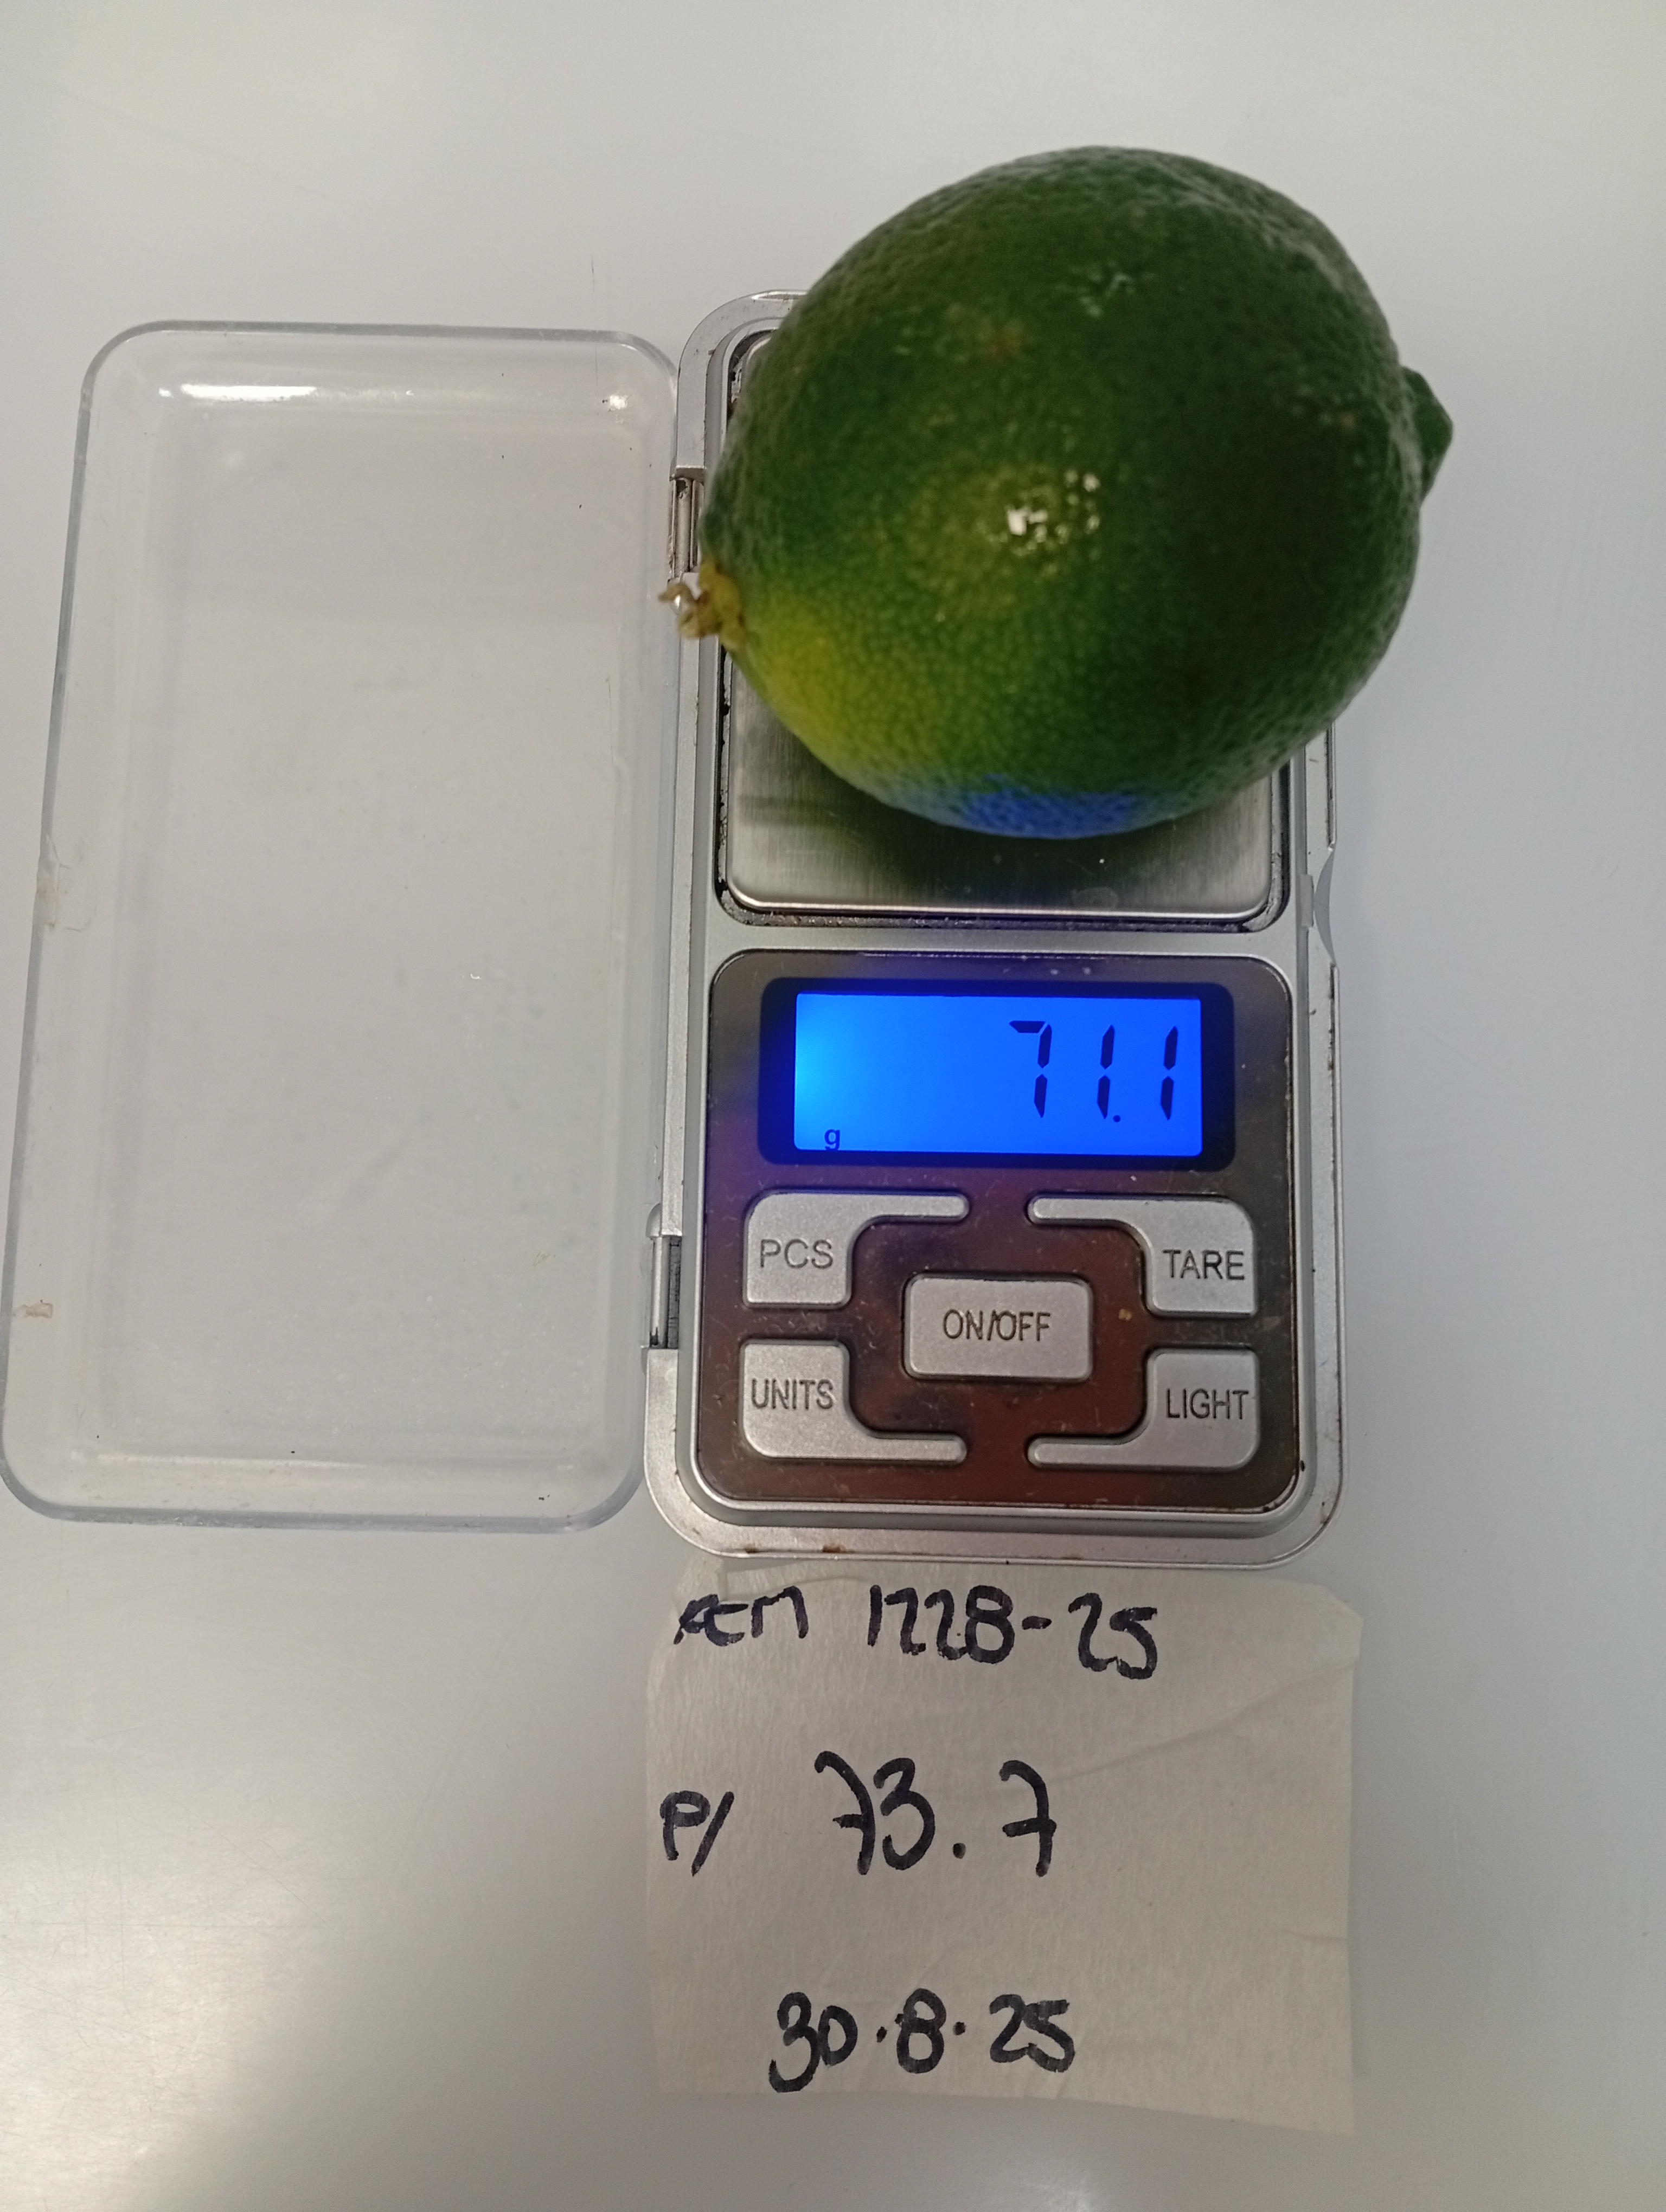 71.1
g
PCS
TARE
ON/OFF
UNITS
LIGHT
1228-25
P/ 73.7
30.8.25